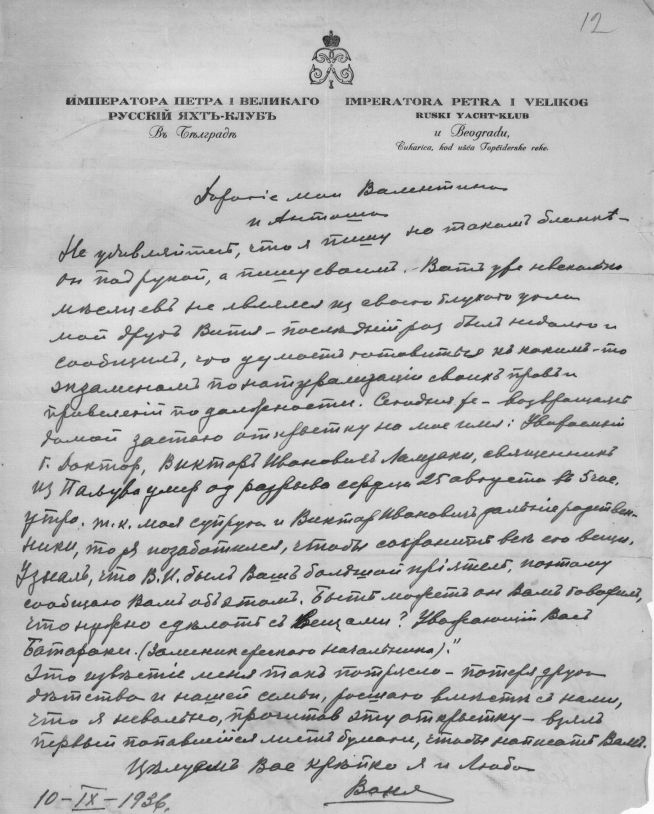 12
ИМПЕРАТОРА ПЕТРА I ВЕЛИКАГО
РУССКІЙ ЯХТЪ-КЛУБЪ
Въ Бѣлградѣ
IMPERATORA PETRA I VELIKOG
RUSKI YACHT-KLUB
u Beogradu,
Čukarica, kod ušća Topčiderske reke.
Дорогіе мои Валентина
и Антоша
Не удивляйтесь, что я пишу на такомъ бланкѣ-
он под рукой, а пишу своимъ. Вотъ уже несколько
мѣсяцевъ не являлся из своего глухого угла
мой другъ Витя - послѣдній раз былъ недолго и
сообщилъ, что думаетъ готовиться къ какимъ-то
экзаменамъ по натурализаціи своихъ правъ и
привелегій по должности. Сегодня же - возвращаясь
домой застаю открытку на мое имя: Уважаемый
г. Доктор, Викторъ Ивановичъ священник
из умер од разрыва сердца 25 августа в 5 час.
утро. т.к. моя супруга и Виктор Ивановичъ дальніе родствен-
ники, то я позаботился, чтобы сохранить всѣ его вещи.
Узналъ, что В.И. былъ Вашъ большой пріятель, поэтому
сообщаю Вамъ объ этомъ. Быть можетъ он Вамъ говорил,
что нужно сдѣлать съ вещами? Уважающій Вас
(Заменик сресского начальника)."
Это извѣстіе меня такъ потрясло - потеря друга
дѣтства и нашей семьи, росшаго вмѣстѣ с нами,
что я невольно, прочитав эту открытку - взялъ
первый попавшейся листъ бумаги, чтобы написать Вамъ.
Цѣлуемъ Вас крѣпко я и Люба
Ваня
10-IX-1936.